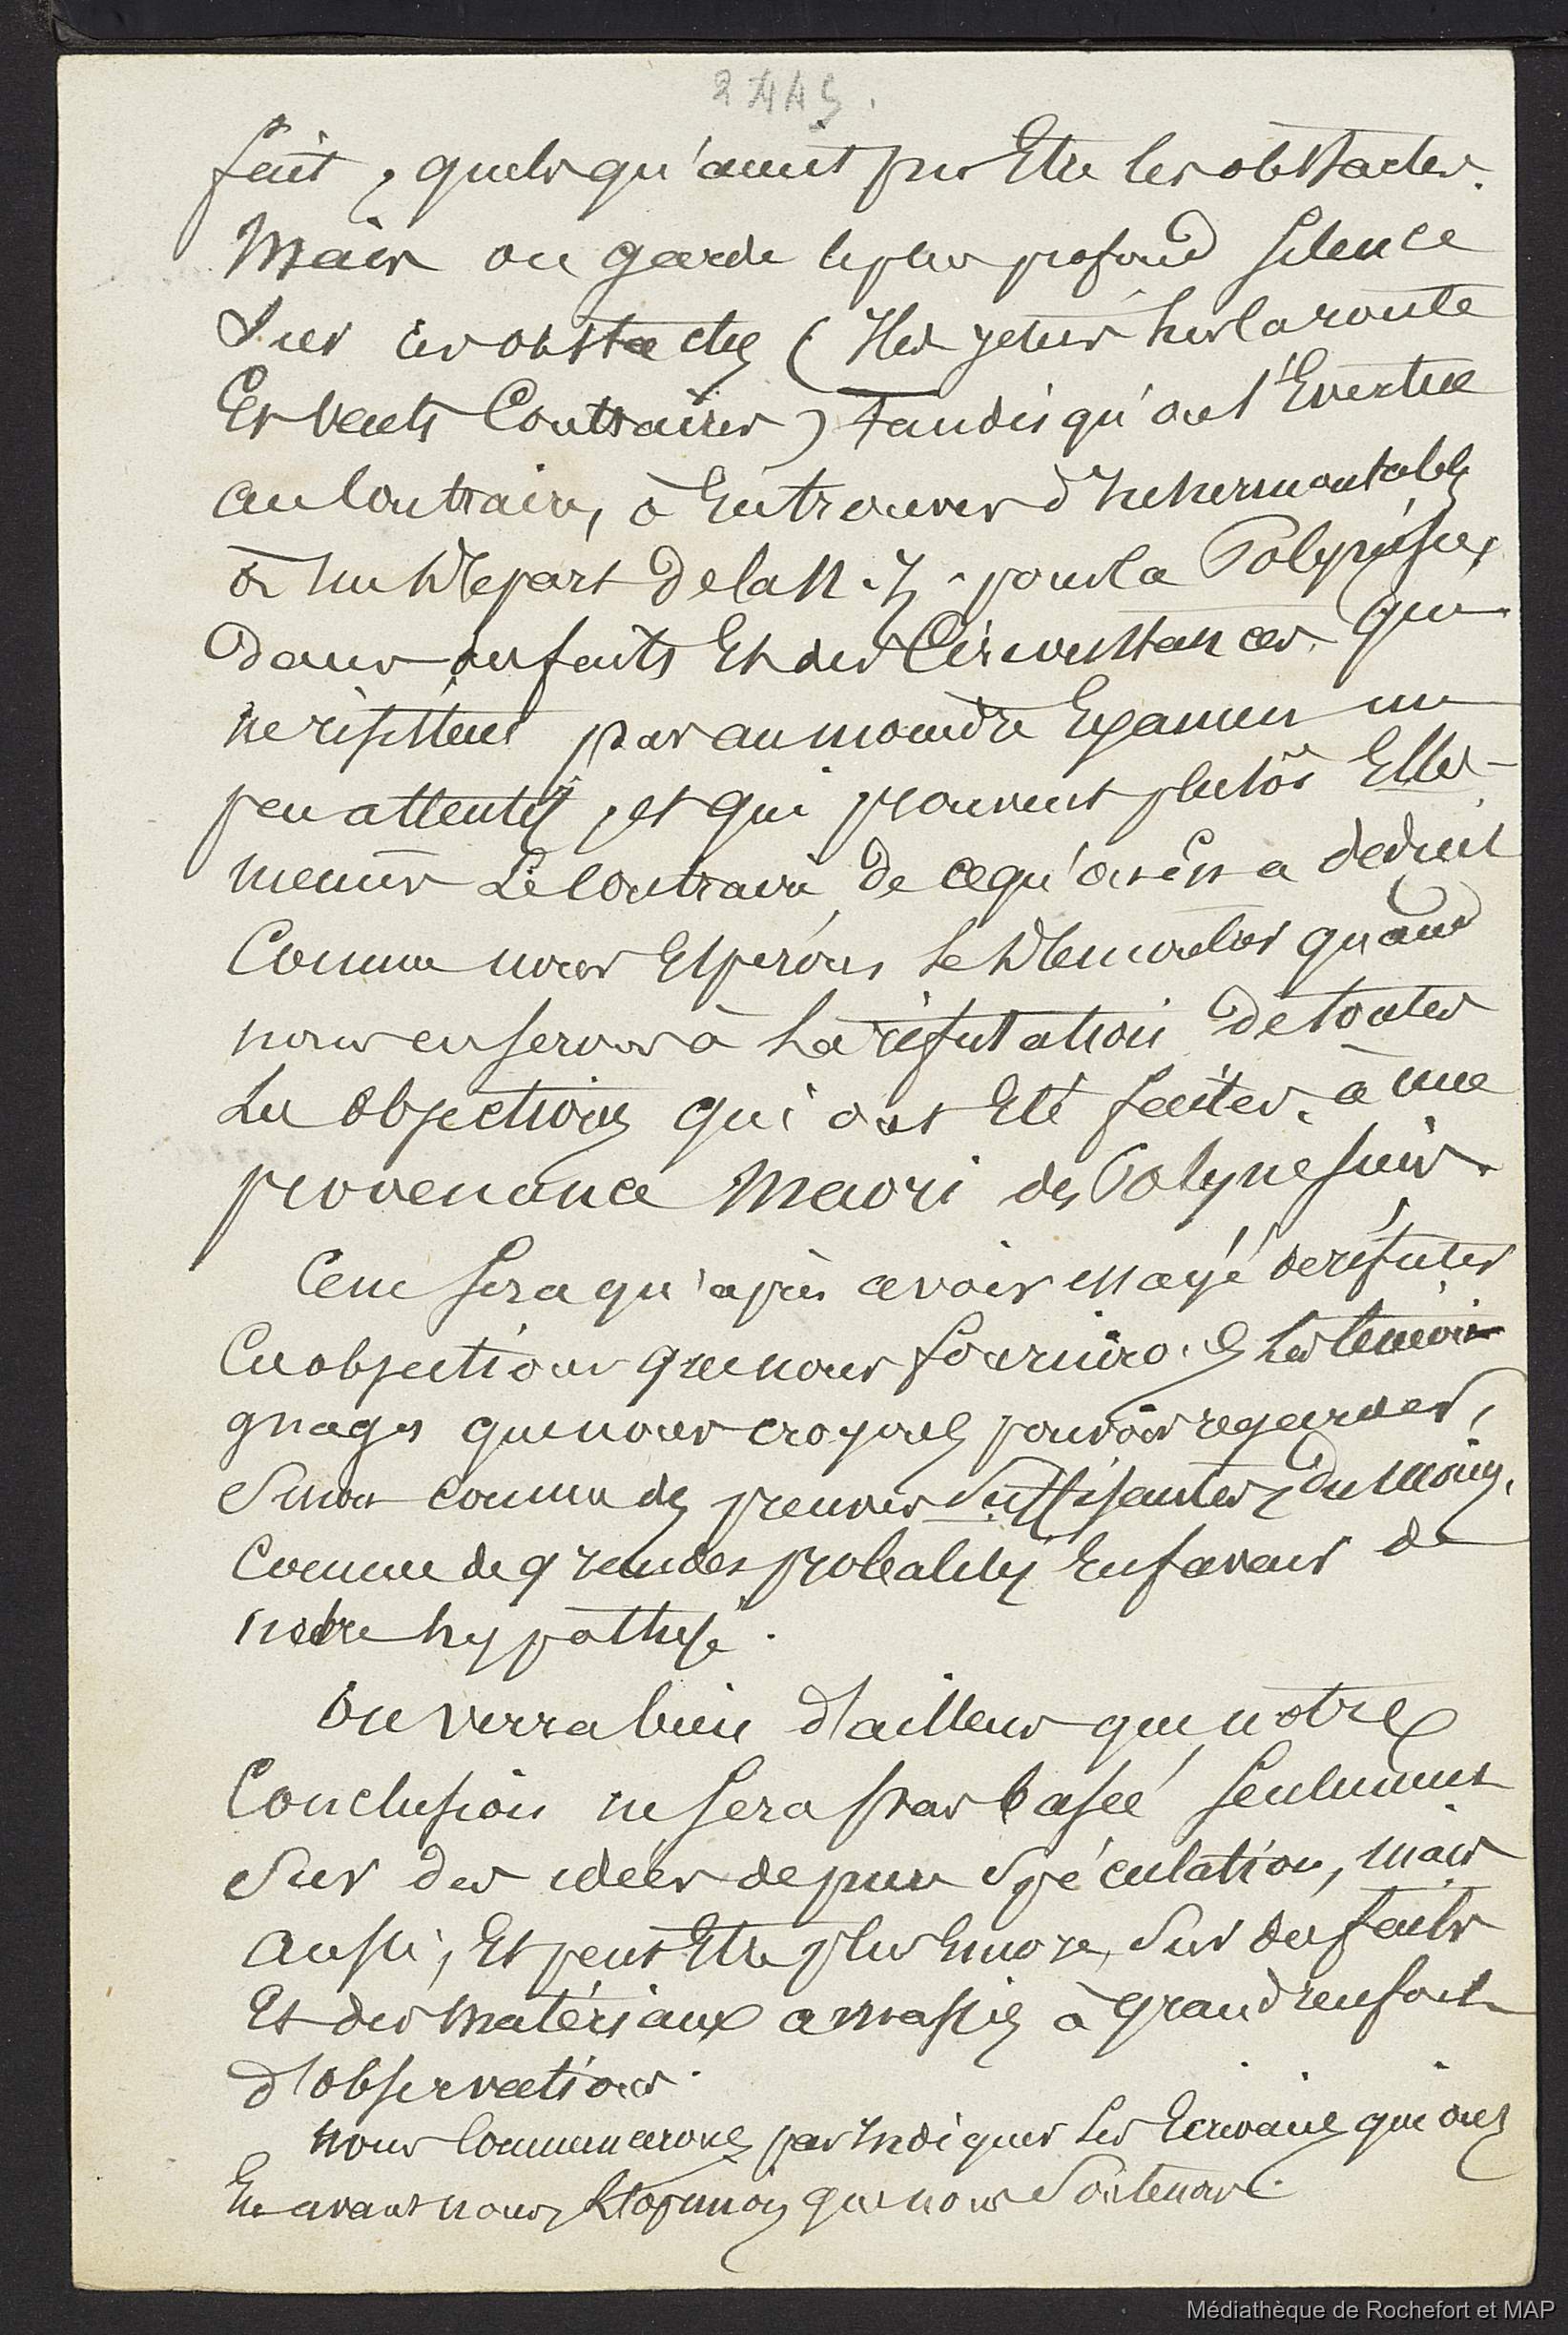 fait, quels qu'aient pu Etre les obstacles.
Mais on garde le plus profond silence
Sur ces obstacles (Iles jetées sur la route
Et vents Contraires) tandis qu'on s'Evertue
au Contraire, à En trouver d'insurmontables
à un départ de la N. Z. pour la Polynésie,
Dans des faits Et des Circonstances qui
ne résistent pas au moindre Examen un
peu attentif, et qui prouvent plutôt Elles-
memes Le Contraire de ce qu'on En a déduit
Comme nous Espérons le démontrer quand
nous en serons à la réfutation de toutes
Les Objections qui ont Eté faites à une
provenance Maori des Polynesiens.
Ce ne sera qu'après avoir essayé de réfuter
Ces objections que nous fournirons les témoi
gnages que nous croyons pouvoir regarder,
Sinon comme des preuves Suffisantes, du moins,
Comme de grandes probalités En faveur de
notre hypothèse.
On verra bien d'ailleurs que notre
Conclusion ne sera pas basée seulement
Sur des idées de pure Spéculation, mais
aussi, Et peut Etre plus Encore, Sur des faits
Et des Matériaux amassés à grand renfort
d'Observations.
Nous Commencerons par Indiquer Les Ecrivains qui ont
Eu avant nous l'opinion que nous Soutenons.
Médiathèque de Rochefort et MAP